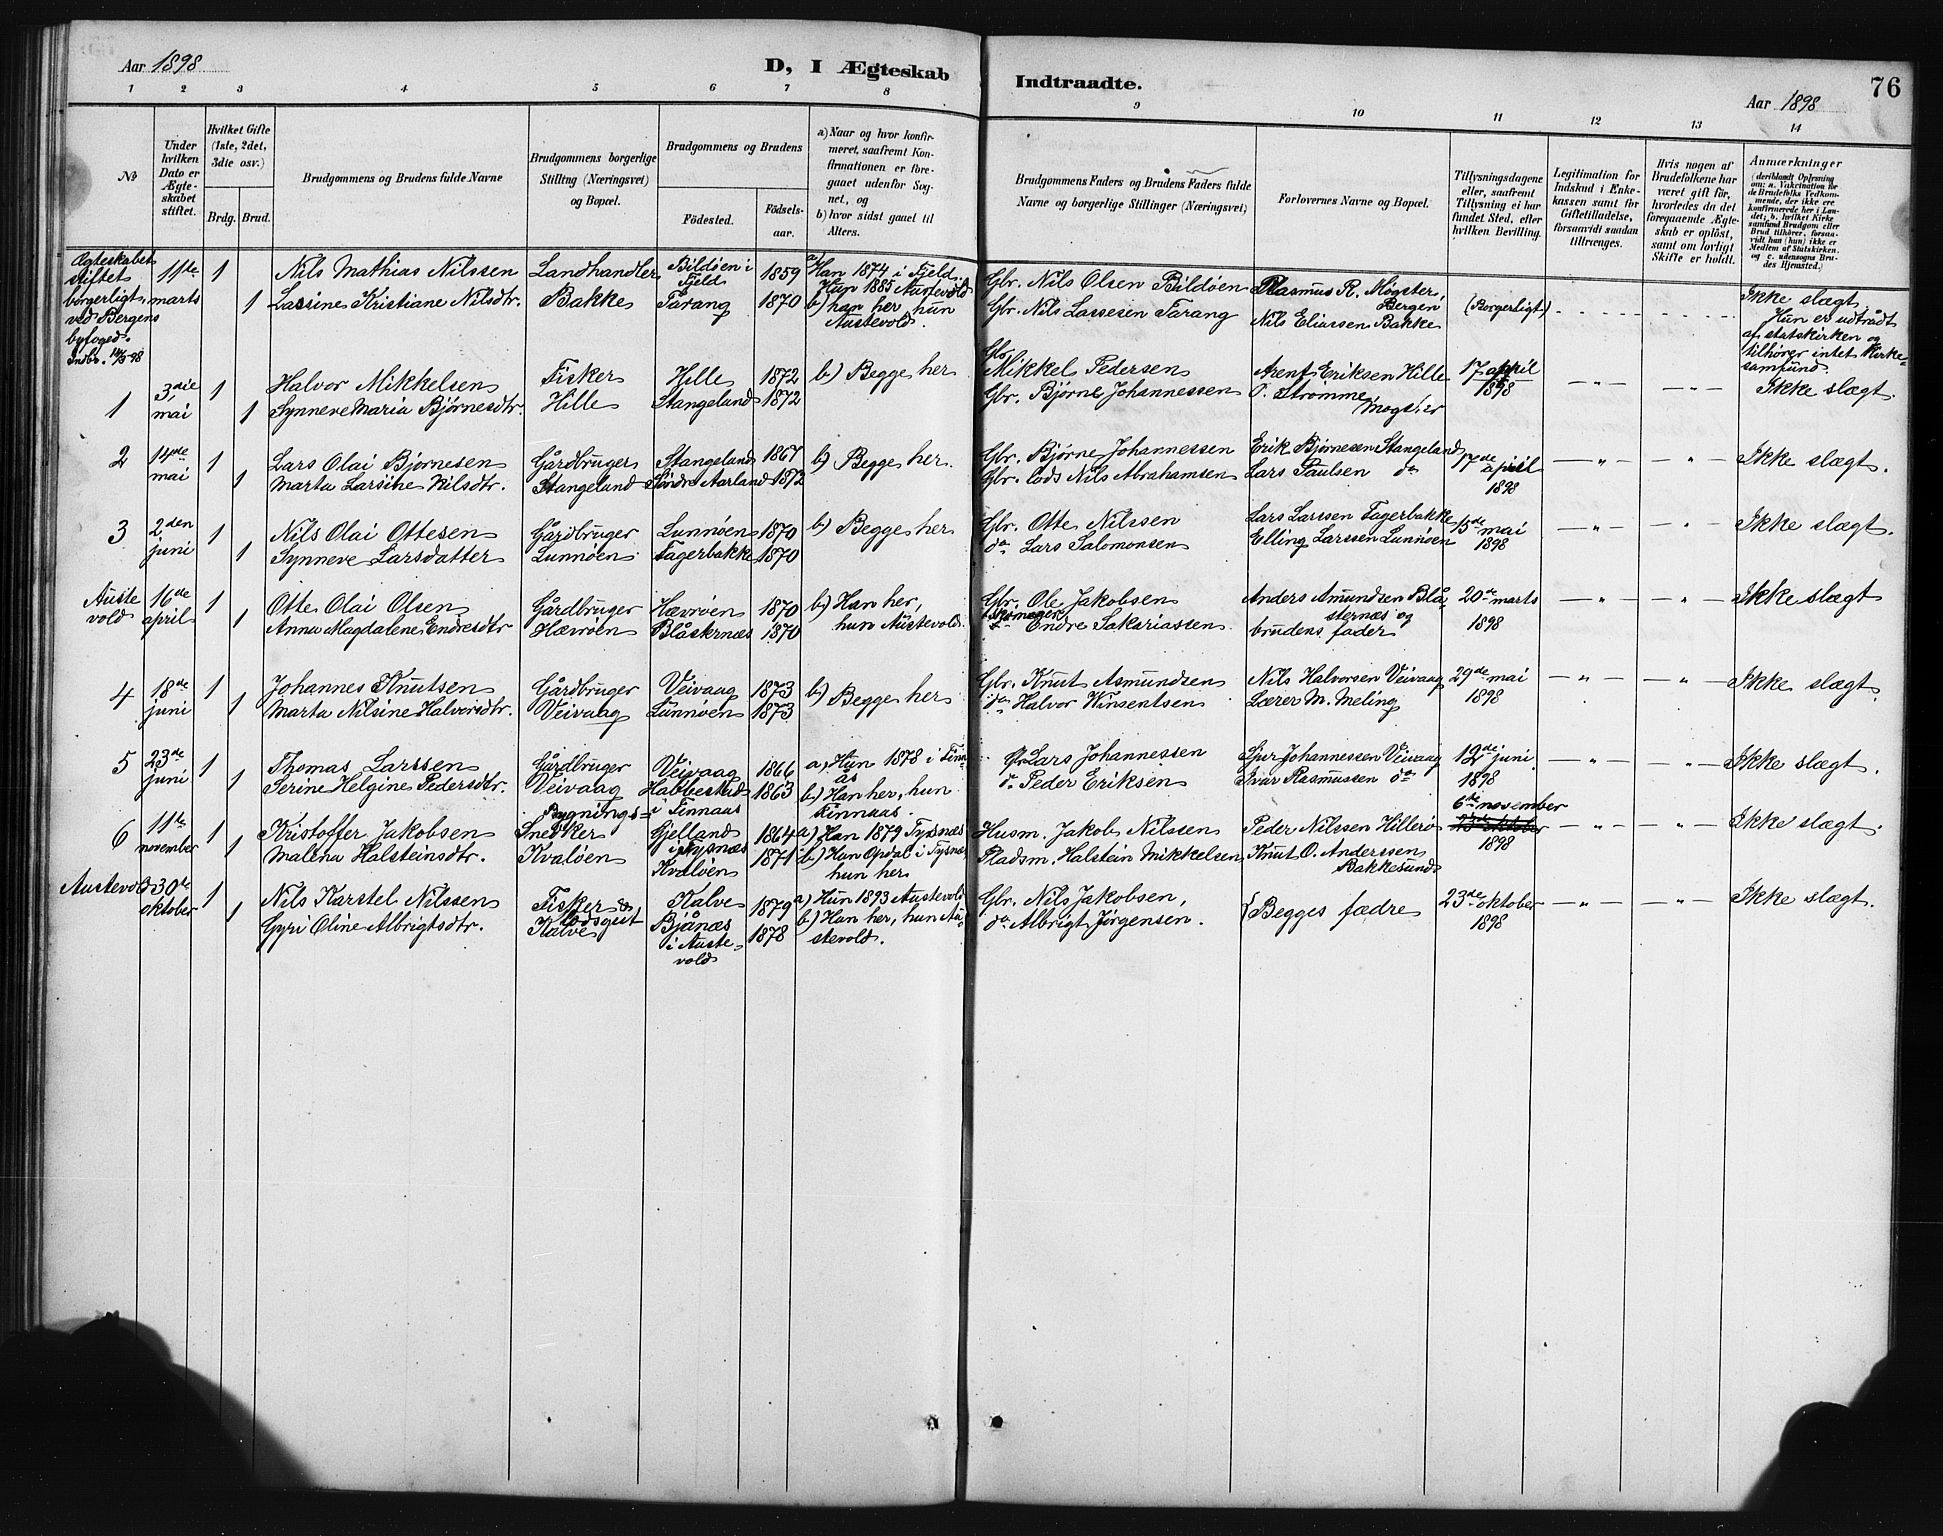 Aar 1898
D, I Ægteskab Indtraadte.
Aar 1898
76
1 2 3 4 5 6 7 8 9 10 11 12 13 14
No
Under hvilken Dato er Ægteskabet stiftet.
Hvilket Gifte (1ste, 2det, 3die osv.)
Brdg. Brud.
Brudgommens og Brudens fulde Navne
Brudgommens borgerlige Stilling (Næringsvei) og Bopæl.
Brudgommens og Brudens
Födested.
Födselsaar.
a) Naar og hvor konfirmeret, saafremt Konfirmationen er foregaaet udenfor Sognet, og
b) hvor sidst gaaet til Alters.
Brudgommens Faders og Brudens Faders fulde Navne og borgerlige Stillinger (Næringsvei)
Forlovernes Navne og Bopæl.
Tillysningsdagene eller, saafremt Tillysning ei har fundet Sted, efter hvilken Bevilling.
Legitimation for Indskud i Enkekassen samt for Giftetilladelse, forsaavidt saadan tiltrænges.
Hvis nogen af Brudefolkene har været gift för, hvorledes da det foregaaende Ægteskab er oplöst, samt om lovligt Skifte er holdt.
Anmærkninger (deriblandt Oplysning om: a. Vakcination for de Brudefolks Vedkommende, der ikke ere konfirmerede her i Landet; b. hvilket Kirkesamfund Brudgom eller Brud tilhörer, forsaavidt han (hun) ikke er Medlem af Statskirken, og c. udensogns Brudes Hjemsted.)
Ægteskabet stiftet borgerligt ved Bergens byfoged. Indb. 14/3 98
11te marts
1
1
Nils Mathias Nilssen
Lassine Kristiane Nilsdtr.
Landhandler
Bakke
Bildöen i Fjeld
Tarang
1859
1870
a) Han 1874 i Fjeld. Hun 1885 Austevold
b) han her, hun Austevold.
Gbr. Nils Olsen Bildöen
Gbr. Nils Lassesen Tarang
Rasmus R. Mögster, Bergen
Nils Eliassen Bakke
(Borgerligt)
Ikke slægt. Hun er udtrådt af statskirken og tilhører intet kirkesamfund.
1
3die mai
1
1
Halvor Mikkelsen
Synneve Maria Bjørnesdtr.
Fisker
Hille
Hille
Stangeland
1872
1872
b) Begge her
Gbr. Mikkel Pedersen
Gbr. Bjørne Johannessen
Arent Eriksen Hille
O. Strømme Møgster
17 april 1898
— " —
— " —
Ikke slægt.
2
14de mai
1
1
Lars Olai Bjørnesen
Marta Larsine Nilsdtr.
Gårdbruger
Stangeland
Stangeland
Söndre Aarland
1867
1872
b) Begge her.
Gbr. Bjørne Johannessen
Gbr. lods Nils Abrahamsen
Erik Bjørnesen Stangeland
Lars Paulsen do
17de april 1898
— " —
"
Ikke slægt.
3
2den juni
1
1
Nils Olai Ottesen
Synneve Larsdatter
Gårdbruger
Lunnöen
Lunnöen
Fagerbakke
1870
1870
b) Begge her
Gbr. Otte Nilssen
do Lars Salomonsen
Lars Larssen Fagerbakke
Elling Larssen Lunnöen
15de mai 1898
— " —
— " —
Ikke slægt.
Austevold
16de april
1
1
Otte Olai Olsen
Anna Magdalene Endresdtr
Gårdbruger
Hævröen
Hævröen
Blåsternæs
1870
1870
b) Han her, hun Austevold.
Gbr. Ole Jakobsen
Endre Sakariassen
Anders Amundsen Blåsternæs og brudens fader
20de marts 1898
— " —
— " —
Ikke slægt
4
18de juni
1
1
Johannes Knutsen
Marta Nilsine Halvorsdtr.
Gårdbruger
Veivaag
Veivaag
Lunnöen
1873
1873
b) Begge her
Gbr. Knut Asmundsen
do Halvor Winsentsen
Nils Halvorsen Veivaag
Lærer M. Meling
29de mai 1898
— " —
— " —
Ikke slægt.
5
23de juni
1
1
Thomas Larssen
Serine Helgine Pedersdtr.
Gårdbruger
Veivaag
Veivaag
Habbestad i Finnaas
1866
1863
a) Hun 1878 i Finnås
b) Han her, hun Finnaas.
Gbr Lars Johannessen
do Peder Eriksen
Sjur Johannessen Veivaag
Ivar Rasmussen do
12te juni 1898
— " —
— " —
Ikke slægt.
6
11te november
1
1
Kristoffer Jakobsen
Malena Halsteinsdtr.
Bygningssnedker
Kvalöen
Gjelland i Tysnæs
Kvalöen
1864
1871
a) Han 1879 Tysnæs
b) Han Opdal i Tysnæs hun her
Husm. Jakob Nilssen
Pladsm. Halstein Mikkelsen
Peder Nilssen Hillerö
Knut O. Anderssen Bakkesund
6te november
23de oktober 1898
— " —
— " —
Ikke slægt.
Austevold
30te oktober
1
1
Nils Karstel Nilssen
Gyri Oline Albrigtsdtr.
Fisker & lodsgut
Kalve
Kalve
Bjånæs i Austevold
1879
1878
a) Hun 1893 Austevold
b) Han her, hun Austevold.
Gbr. Nils Jakobsen,
do Albrigt Jørgensen.
{Begges fædre
23de oktober 1898
— " —
— " —
Ikke slægt.